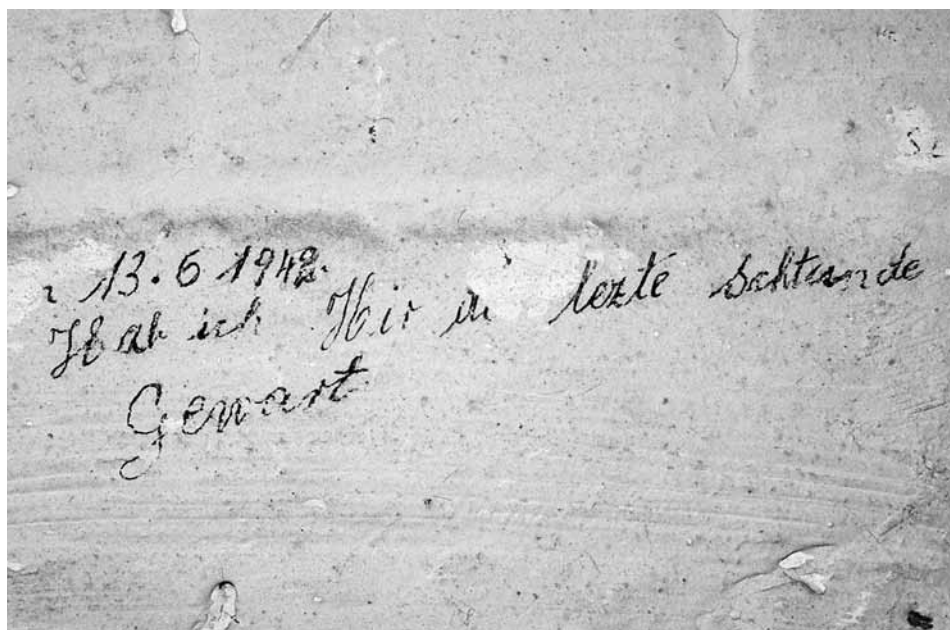 13.6 1942
Hab ich Hir di lezte Schtunde
Gewart